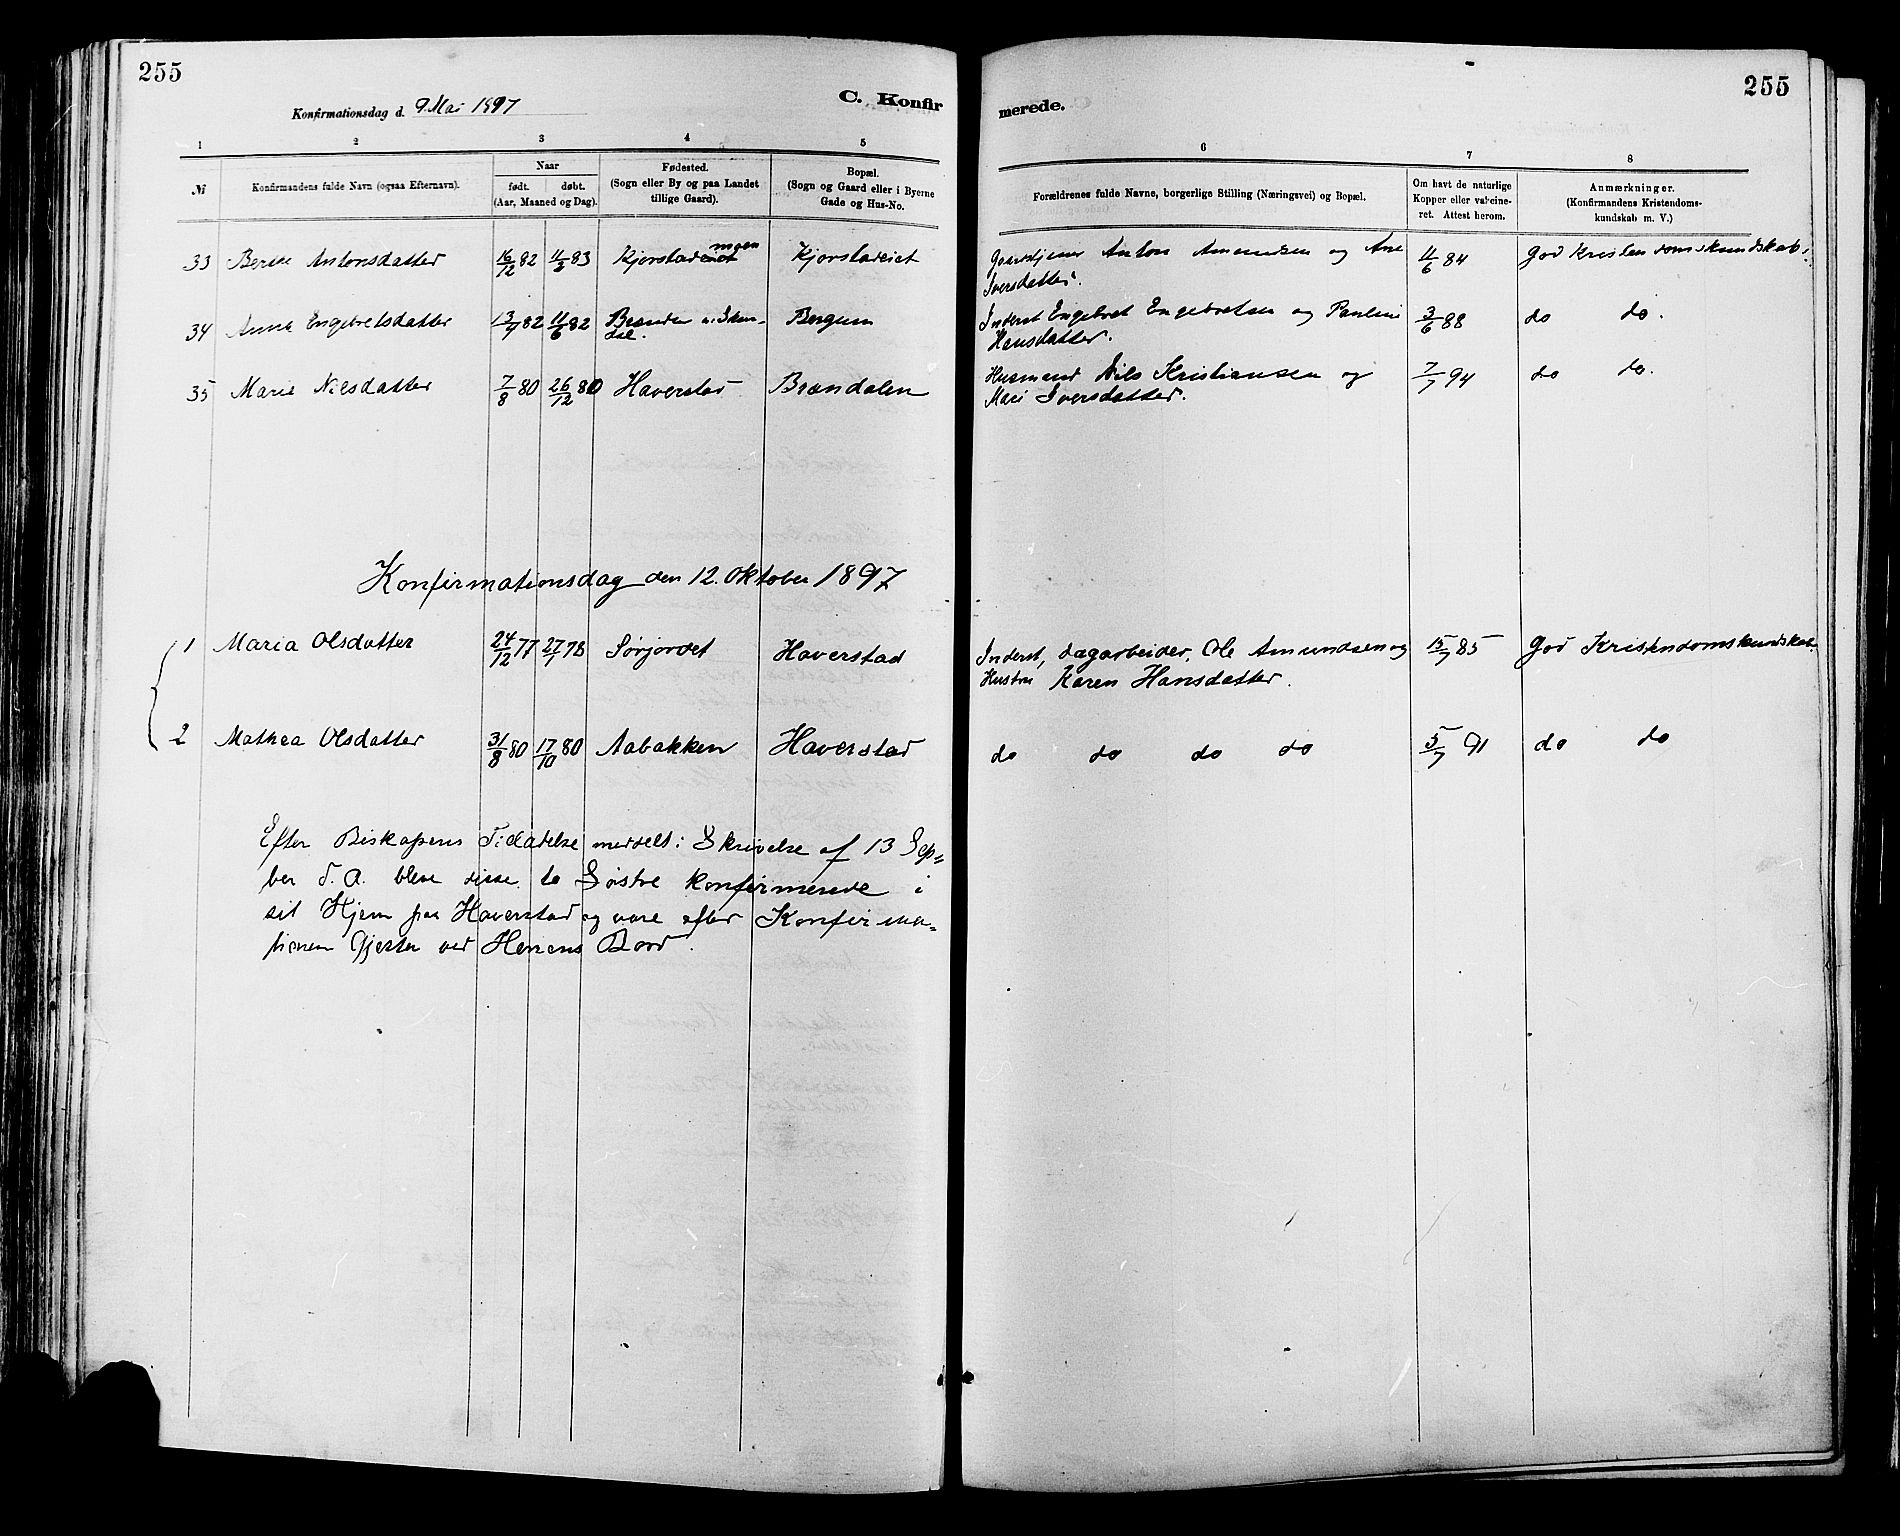 255
Konfirmationsdag d. 9. Mai 1897
C. Konfir
merede.
255
1 2 3 4 5 6 7 8
№
Konfirmandens fulde Navn (ogsaa Efternavn).
Naar
født. døbt.
(Aar, Maaned og Dag).
Fødested.
(Sogn eller By og paa Landet
tillige Gaard).
Bopæl.
(Sogn og Gaard eller i Byerne
Gade og Hus-No.
Forældrenes fulde Navne, borgerlige Stilling (Næringsvei) og Bopæl.
Om havt de naturlige
Kopper eller vaccine-
ret. Attest herom.
Anmærkninger.
(Konfirmandens Kristendoms-
kundskab m. V.)
33 Berthe Antonsdatter 16/12 82 11/2 83 Kjorstadeiet moen Kjorstadeiet Gaardtjener Anton Amundsen og Ane 11/6 84 God Kristendomskundskab
Iversdatter.
34 Anna Engebretsdatter 13/4 82 11/6 82 Branden i Skon- Bergum Inderst Engebret Engebretsen og Pauline 3/6 88 do do.
dal. Hansdatter.
35 Marie Nilsdatter 7/8 80 26/12 80 Haverstad Brændalen Husmand Nils Kristiansen og 7/7 94 do do.
Mari Iversdatter.
Konfirmationsdag den 12. Oktober 1897
1 Maria Olsdatter 24/12 77 27/1 78 Sørjordet Haverstad Inderst, dagarbeider, Ole Amundsen og 15/7 85 God Kristendomskundskab
Hustru Karen Hansdatter.
2 Mathea Olsdatter 31/8 80 17/10 80 Aabakken Haverstad do do do do 5/7 91 do do
Efter Biskopens Tilladelse meddelt i Skrivelse af 13 Sep-
ber d. A. bleve disse to Søstre konfirmerede i
sit Hjem paa Haverstad og vare efter Konfirma-
tionen Gjester ved Herrens Bord.